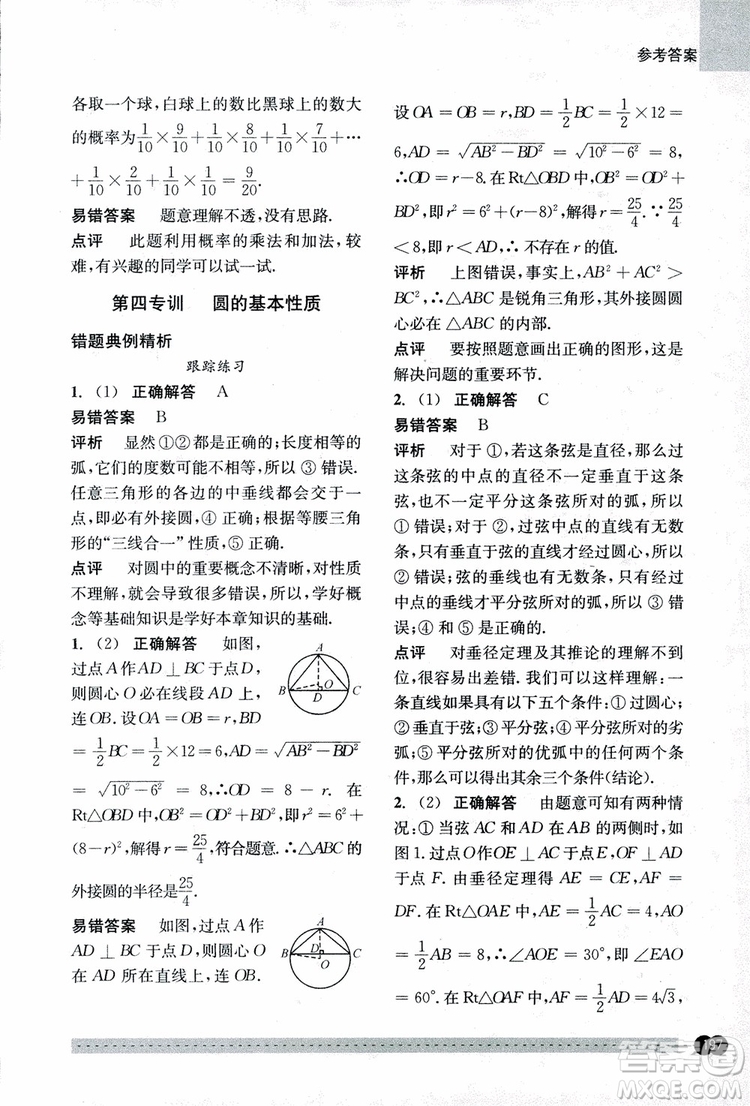 参考答案
各取一个球,白球上的数比黑球上的数大
的概率为1/10×9/10+1/10×8/10+1/10×7/10+…
+1/10×2/10+1/10×1/10=9/20.
易错答案 题意理解不透,没有思路.
点评 此题利用概率的乘法和加法,较
难,有兴趣的同学可以试一试.
第四专训 圆的基本性质
错题典例精析
跟踪练习
1. (1) 正确解答 A
易错答案 B
评析 显然①②都是正确的;长度相等的
弧,它们的度数可能不相等,所以③错误.
任意三角形的各边的中垂线都会交于一
点,即必有外接圆,④正确;根据等腰三角
形的“三线合一”性质,⑤正确.
点评 对圆中的重要概念不清晰,对性质
不理解,就会出现很多错误,所以,学好概
念等基础知识是学好本章知识的基础.
1. (2) 正确解答 如图,
过点A作AD⊥BC于点D,
则圆心O必在线段AD上,
连OB.设OA=OB=r,BD
=1/2BC=1/2×12=6,AD=√AB²-BD²
=√10²-6²=8,∴OD=8-r.在
Rt△OBD中,OB²=OD²+BD²,即r²=6²+
(8-r)²,解得r=25/4,符合题意.∴△ABC的
外接圆的半径是25/4.
A
B
O
D
C
易错答案 如图,过点A作
AD⊥BC于点D,则圆心O
在AD所在的直线上,连OB.
A
B
C
设OA=OB=r,BD=1/2BC=1/2×12=
6,AD=√AB²-BD²=√10²-6²=8,
∴OD=r-8.在Rt△OBD中,OB²=OD²+
BD²,即r²=6²+(r-8)²,解得r=25/4.∵25/4
<8,即r<AD,∴不存在r的值.
评析 上图错误,事实上,AB²+AC²>
BC²,∴△ABC是锐角三角形,其外接圆圆
心必在△ABC的内部.
点评 要按照题意画出正确的图形,这是
解决问题的重要环节.
2. (1) 正确解答 C
易错答案 B
评析 对于①,若这条弦是直径,那么过
这条弦的中点的直径不一定垂直于这条
弦,也不一定平分这条弦所对的弧,所以
①错误;对于②,过弦中点的直线有无数
条,只有垂直于弦的直线才过圆心,所以
②错误;垂直于弦的直线也有无数条,过弦
中点的弦垂线也有无数条,只有过弦
中点的垂线才能平分弦所对的弧,所以③
错误;④⑤正确.
点评 对垂径定理及其推论的理解不到
位,很容易出差错.我们可以这样理解:一
条直线如果具有以下五个条件:①过圆心,
②垂直于弦,③平分弦,④平分弦所对的劣
弧,⑤平分弦所对的优弧中的任何两个条
件,都可以得出其余三个条件(结论).
2. (2) 正确解答 由题意可知有两种情
况:①当弦AC和AD在AB的两侧时,如
图1.过点O作OE⊥AC于点E,OF⊥AD
于点F.由垂径定理可得AE=CE,AF=
DF.在Rt△OAE中,AE=1/2AC=8,AO
=1/2AB=8,∴∠AOE=30°,即∠EAO
=60°.在Rt△OAF中,AF=1/2AD=4√3,
答案圈
MXQE.COM